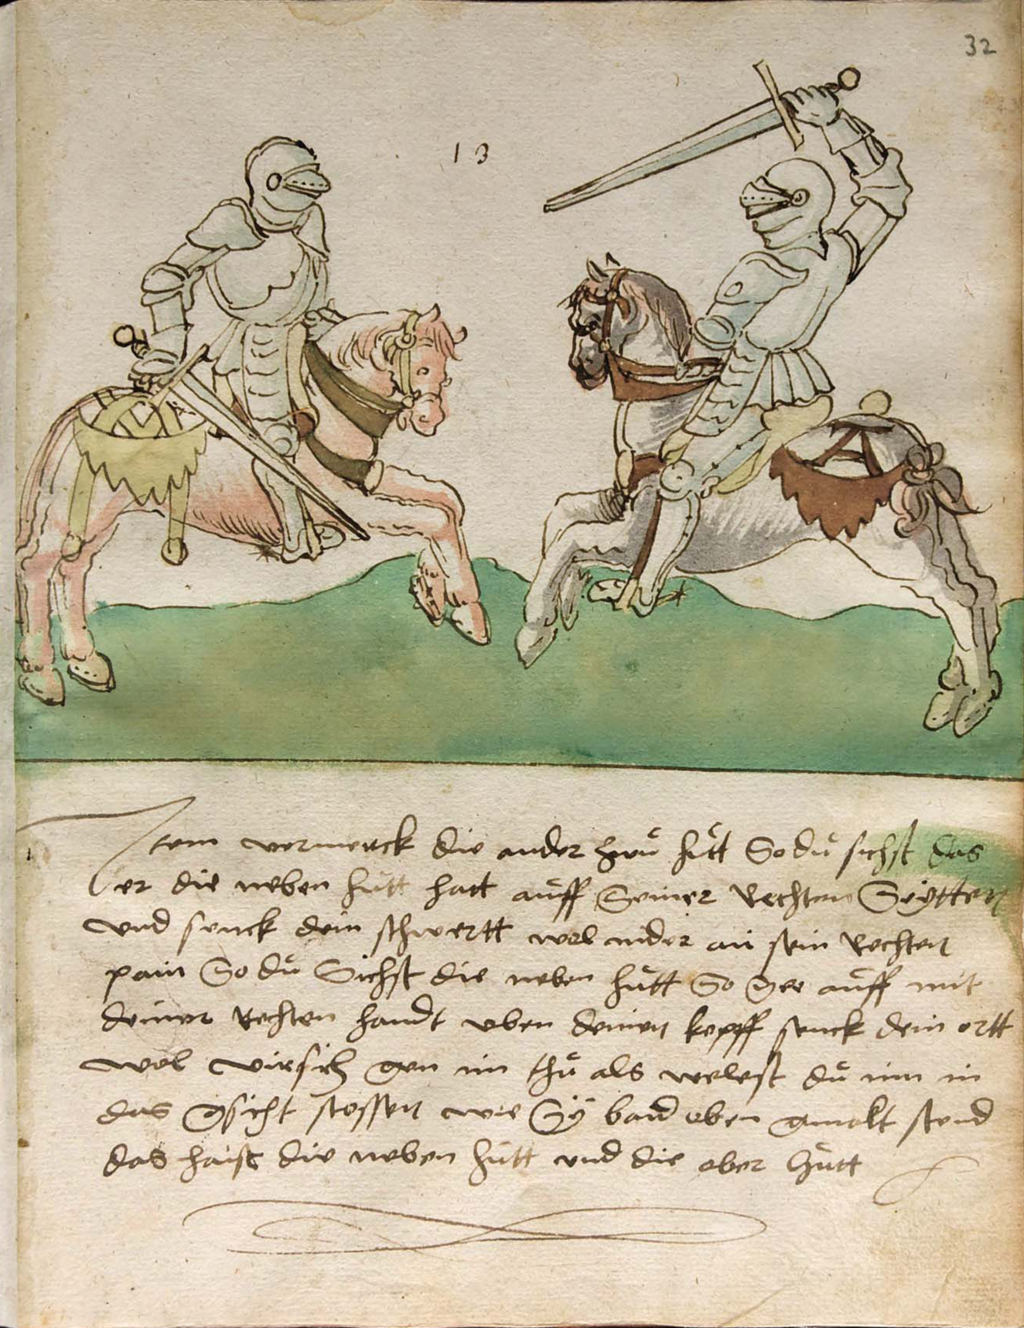 32
13
Item vermerck die ander zwu hütt So dü sichst das
er die neben hütt hatt aüff Seiner Rechten Seÿtten
vnd senck dein schwertt wol nider an sein Rechten
pain So dü Sichst die neben hütt So gee aüff mit
deiner Rechten handt vben deinen kopff senck dein ortt
wol virsich gen im thü als welest dü im in
das gsicht stossen wie Sÿ baid oben gmalt stend
das haist die neben hütt vnd die ober hütt